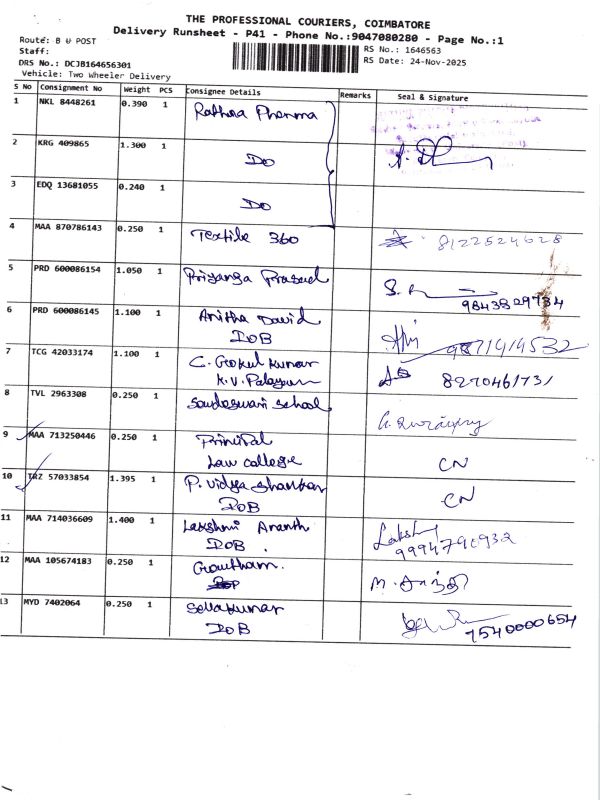 THE PROFESSIONAL COURIERS, COIMBATORE
Delivery Runsheet - P41 - Phone No.:9047080280 - Page No.:1
Route: B U POST
RS No.: 1646563
Staff:
DRS No.: DCJB164656301
RS Date: 24-Nov-2025
Vehicle: Two Wheeler Delivery
S No Consignment No Weight PCS Consignee Details Remarks Seal & Signature
1 NKL 8448261 0.390 1 Rathna Pharma
2 KRG 409865 1.300 1 Do
3 EDQ 13681055 0.240 1 Do
4 MAA 870786143 0.250 1 Textile 360 8122524628
5 PRD 600086154 1.050 1 Priyanga Prasad
9843829734
6 PRD 600086145 1.100 1 Anitha David
IOB
9871919532
7 TCG 42033174 1.100 1 C. Gokul Kumar
K.V. Palayam 8270461731
8 TVL 2963308 0.250 1 school
9 MAA 713250446 0.250 1 Principal
Law college CN
10 TRZ 57033854 1.395 1 P. Vidya Shankar
IOB CN
11 MAA 714036609 1.400 1 Lakshmi Ananth Laksh
IOB 9994790932
12 MAA 105674183 0.250 1 Gowtham. M. சாந்தி
13 MYD 7402064 0.250 1 Selvakumar
IOB 7540000654